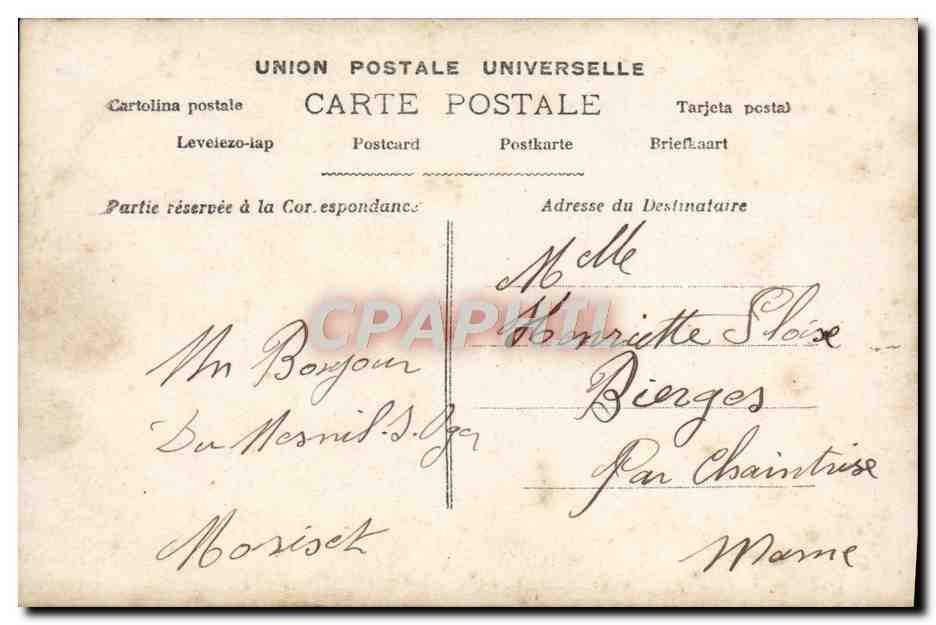 UNION POSTALE UNIVERSELLE
CARTE POSTALE
Cartolina postale
Tarjeta postal
Levelezo-lap Postcard Postkarte Briefkaart
Partie réservée à la Correspondance
Adresse du Destinataire
CPAPHIL
Un Bonjour
Du Mesnil.s.Oger
Moriset
Melle
Henriette Ploix
Bierges
Par Chaintrix
Marne